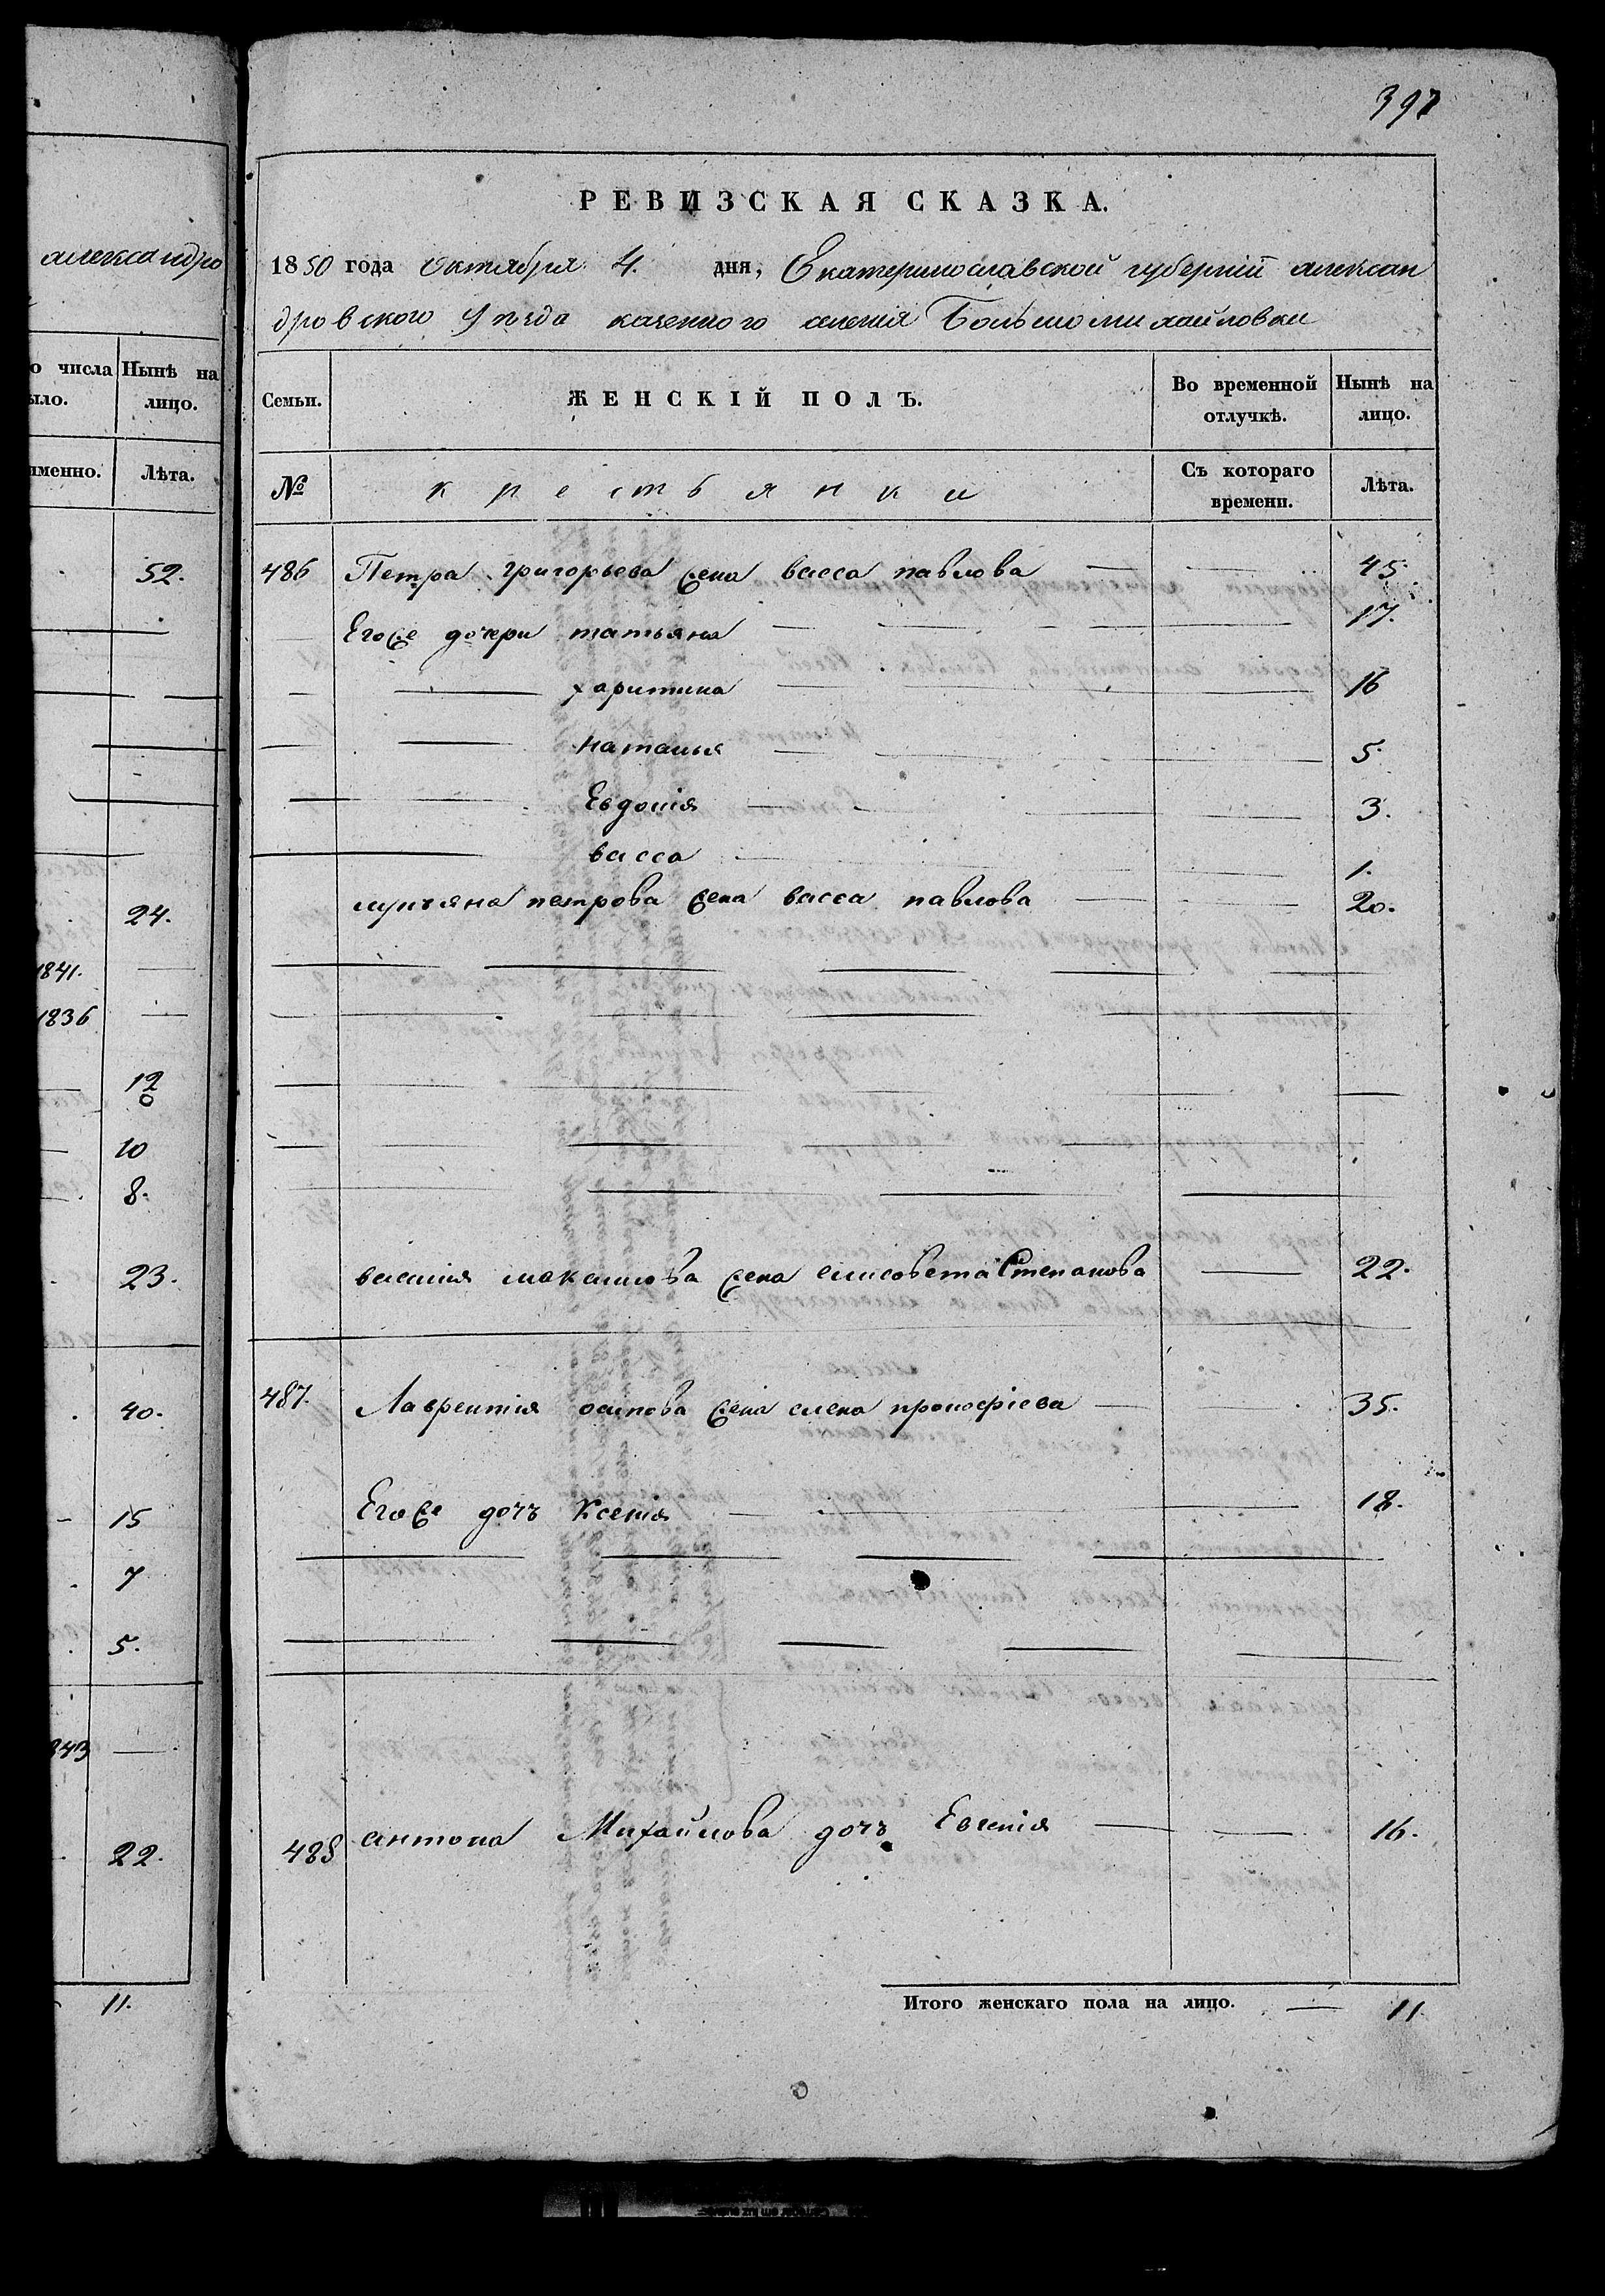 александро
о числа Нынѣ на
ыло. лицо.
именно. Лѣта.
52.
24.
1841.
1836
12
0
10
8.
23.
40.
15
7
5.
843
22.
11.
397
РЕВИЗСКАЯ СКАЗКА.
1850 года Октября 4. дня, Екатеринославской губернїи алексан
дровского Уѣзда казенного селенія Большомихайловки
Семьи. ЖЕНСКІЙ ПОЛЪ. Во временной отлучкѣ. Нынѣ на лицо.
№ крестьянки Съ котораго времени. Лѣта.
486 Петра григорьева жена васса павлова 45.
Егоже дочери татьяна 17.
харитина 16
наталья 5.
Евдокія 3.
васса 1.
лукъяна петрова жена васса павлова 20.
василия максимова жена елисовета Степанова 22.
487. Лаврентія осипова жена елена прокофіева 35.
Егоже дочъ Ксенія 18.
488 антона Михайлова дочъ Евгенія 16.
Итого женскаго пола на лицо. 11.